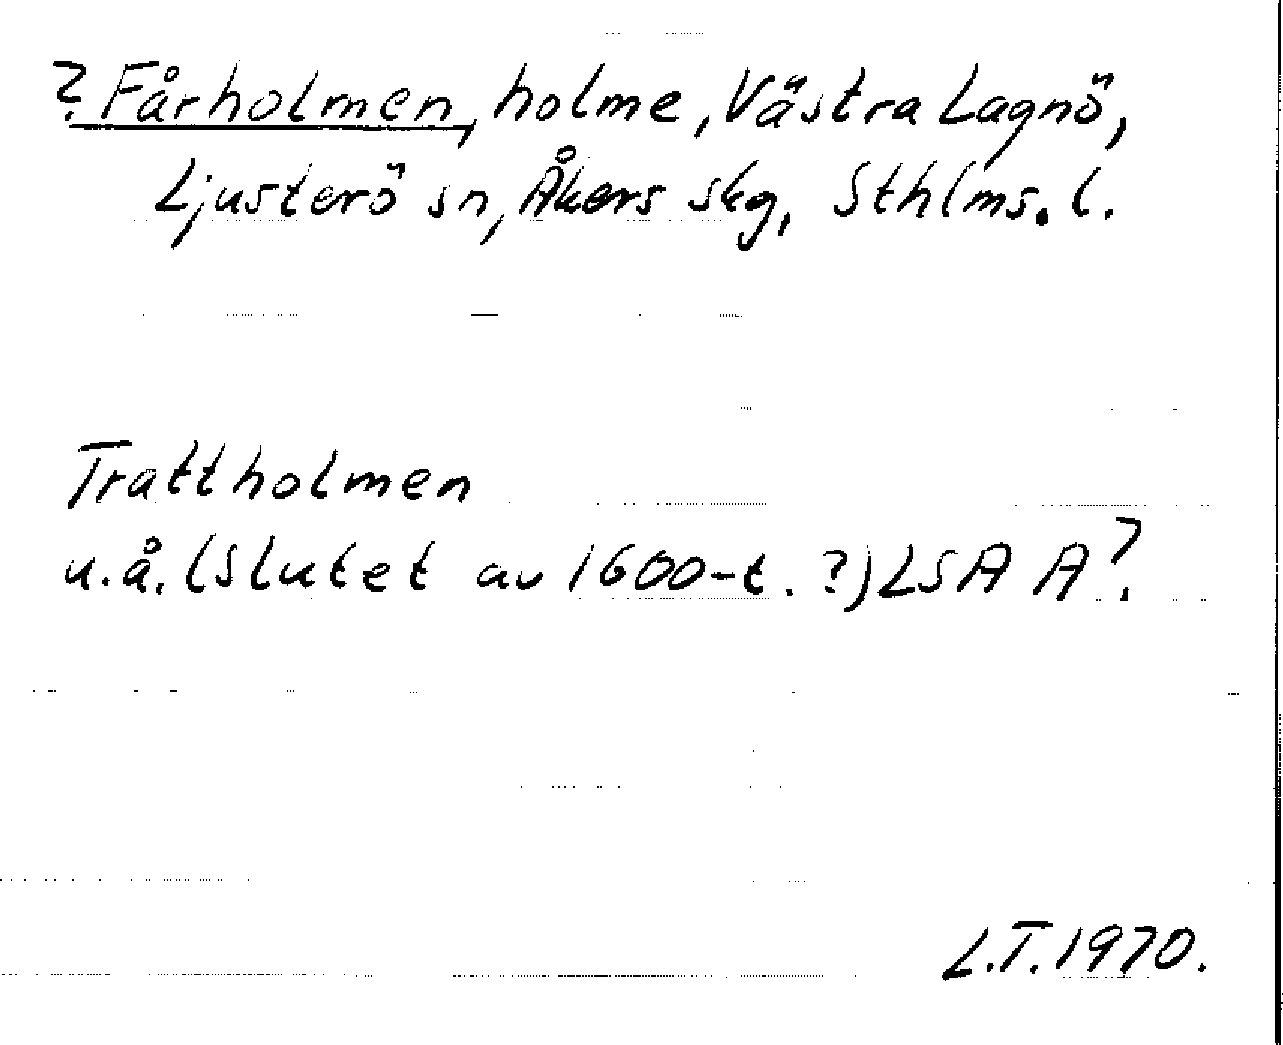 ? Fårholmen, holme, Västra Lagnö,
Ljusterö sn, Åkers skg, Sthlms. l.
Trattholmen
u.å. (Slutet av 1600-t. ?) LSA A?.
L.T. 1970.